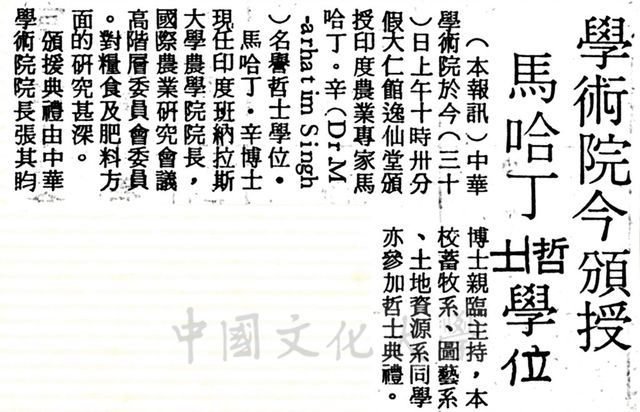 學術院今頒授
馬哈丁哲士學位
（本報訊）中華
學術院於今（三十
）日上午十時卅分
假大仁館逸仙堂頒
授印度農業專家馬
哈丁·辛（Dr M
-arhatim Singh
）名譽哲士學位·
馬哈丁·辛博士
現任印度班納拉斯
大學農學院院長，
國際農業研究會議
高階層委員會委員
。對糧食及肥料方
面的研究甚深。
頒授典禮由中華
學術院院長張其昀
博士親臨主持，本
校蓄牧系、園藝系
、土地資源系同學
亦參加哲士典禮。
中國文化大學